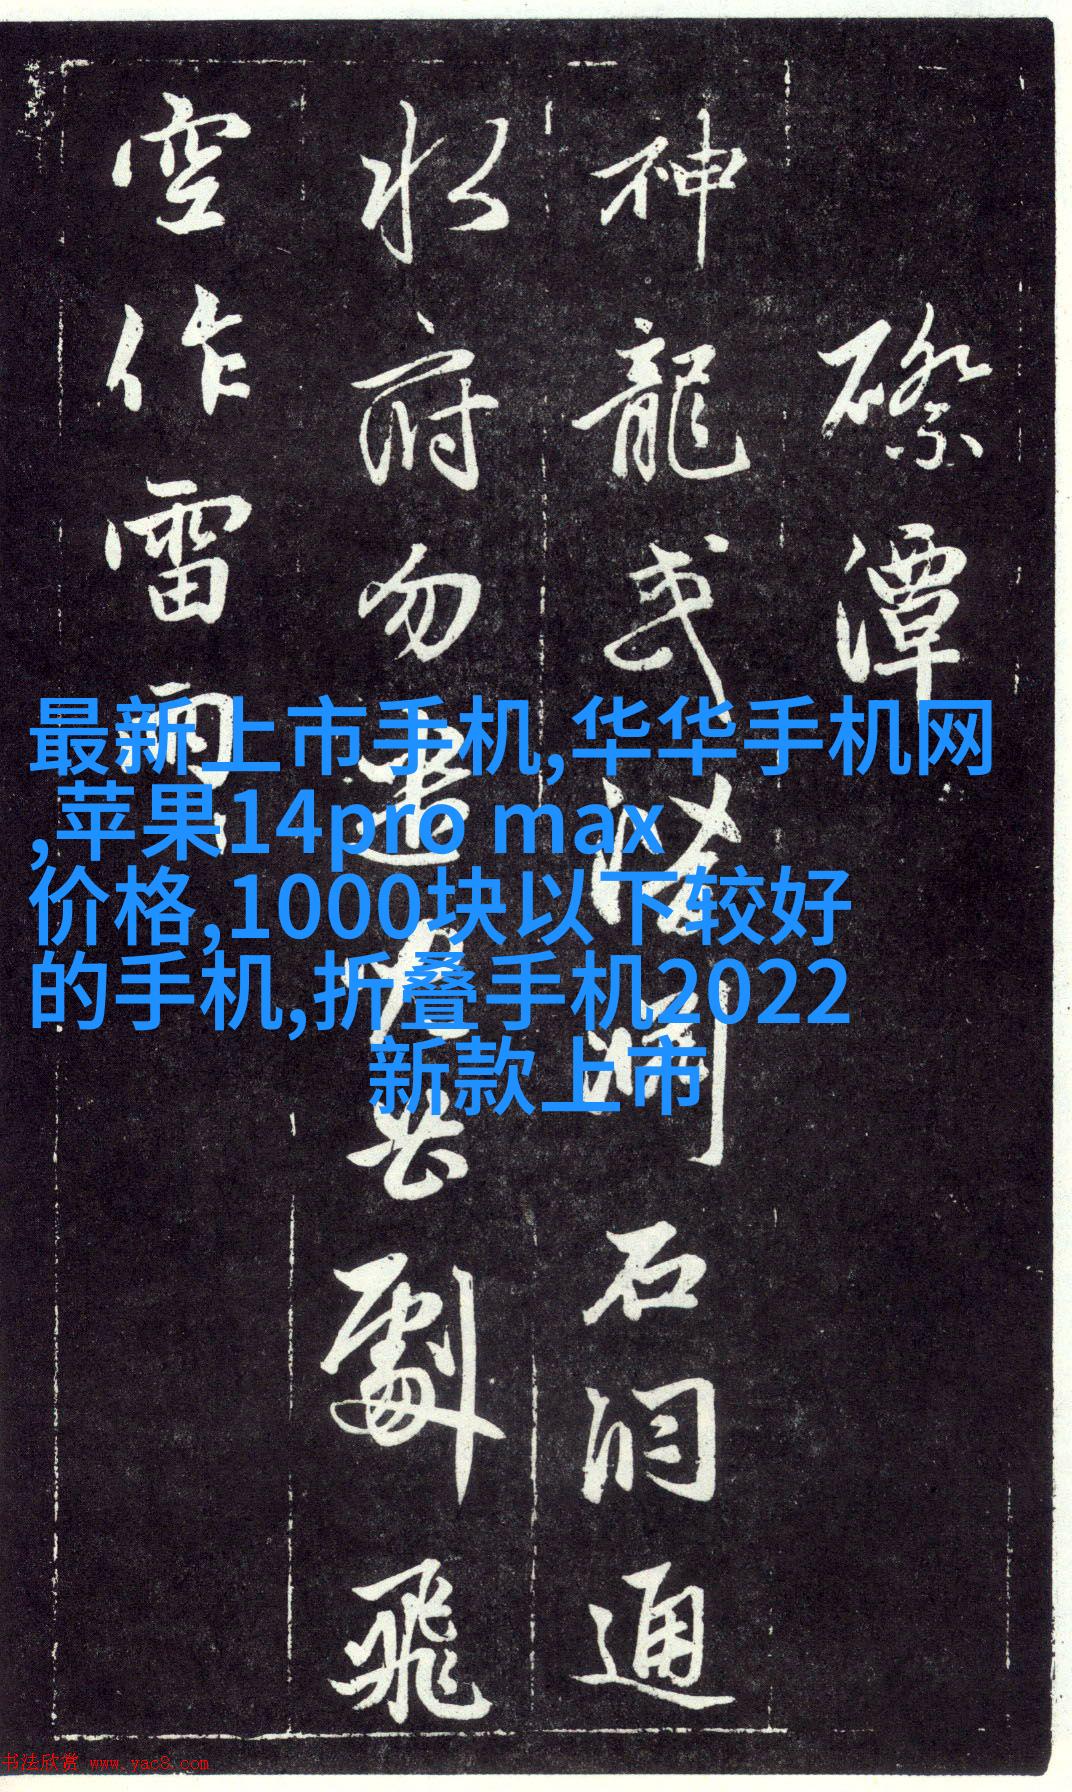 潭
神龍或潛石洞通
水府勿劇飛
空作雷雨
最新上市手机,华华手机网
,苹果14pro max
价格,1000块以下较好
的手机,折叠手机2022
新款上市
书法欣赏 www.yac8.com